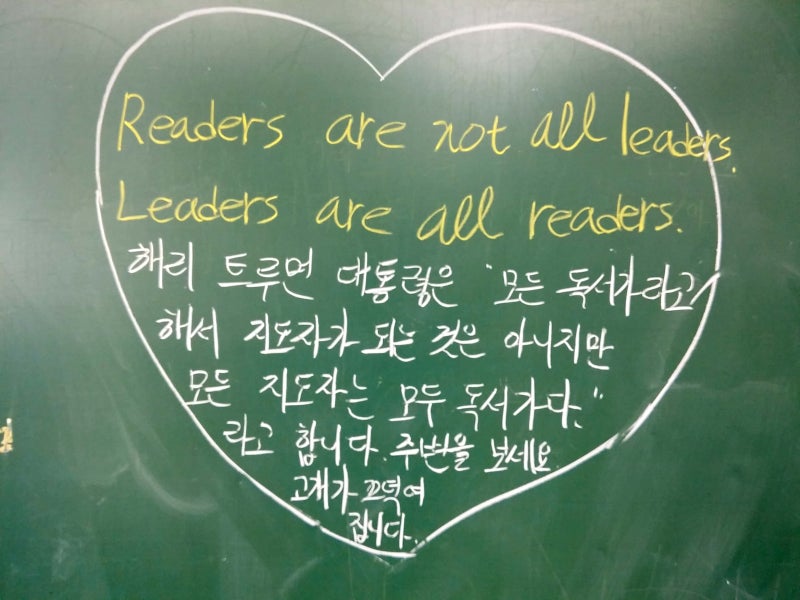 Readers are not all leaders.
Leaders are all readers.
해리 트루먼 대통령은 "모든 독서가라고
해서 지도자가 되는 것은 아니지만
모든 지도자는 모두 독서가다."
라고 합니다. 주변을 보세요.
고개가 끄덕여
집니다.